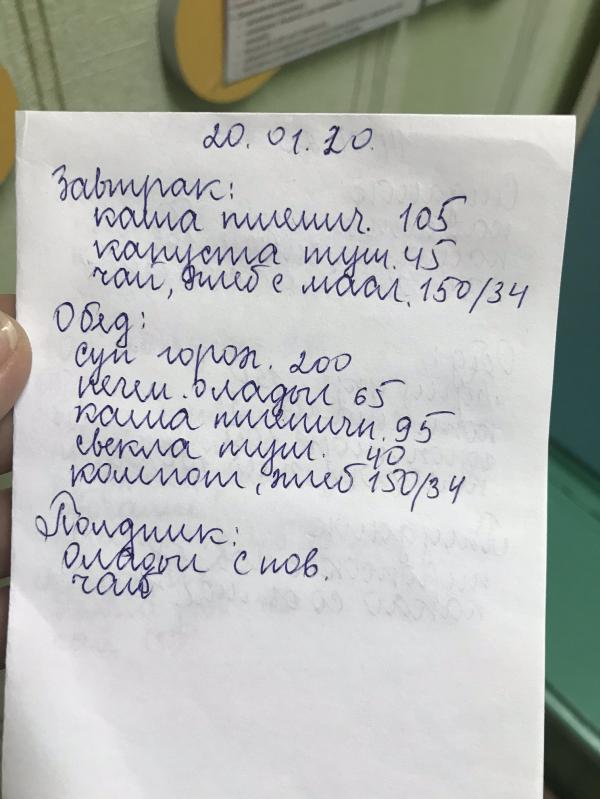 20.01.20.
Завтрак:
каша пшенич. 105
капуста туш. 45
чай, хлеб с масл. 150/34
Обед:
суп горох. 200
печен. оладьи 65
каша пшеничн. 95
свекла туш. 40
компот, хлеб 150/34
Полдник:
Оладьи с пов.
чай